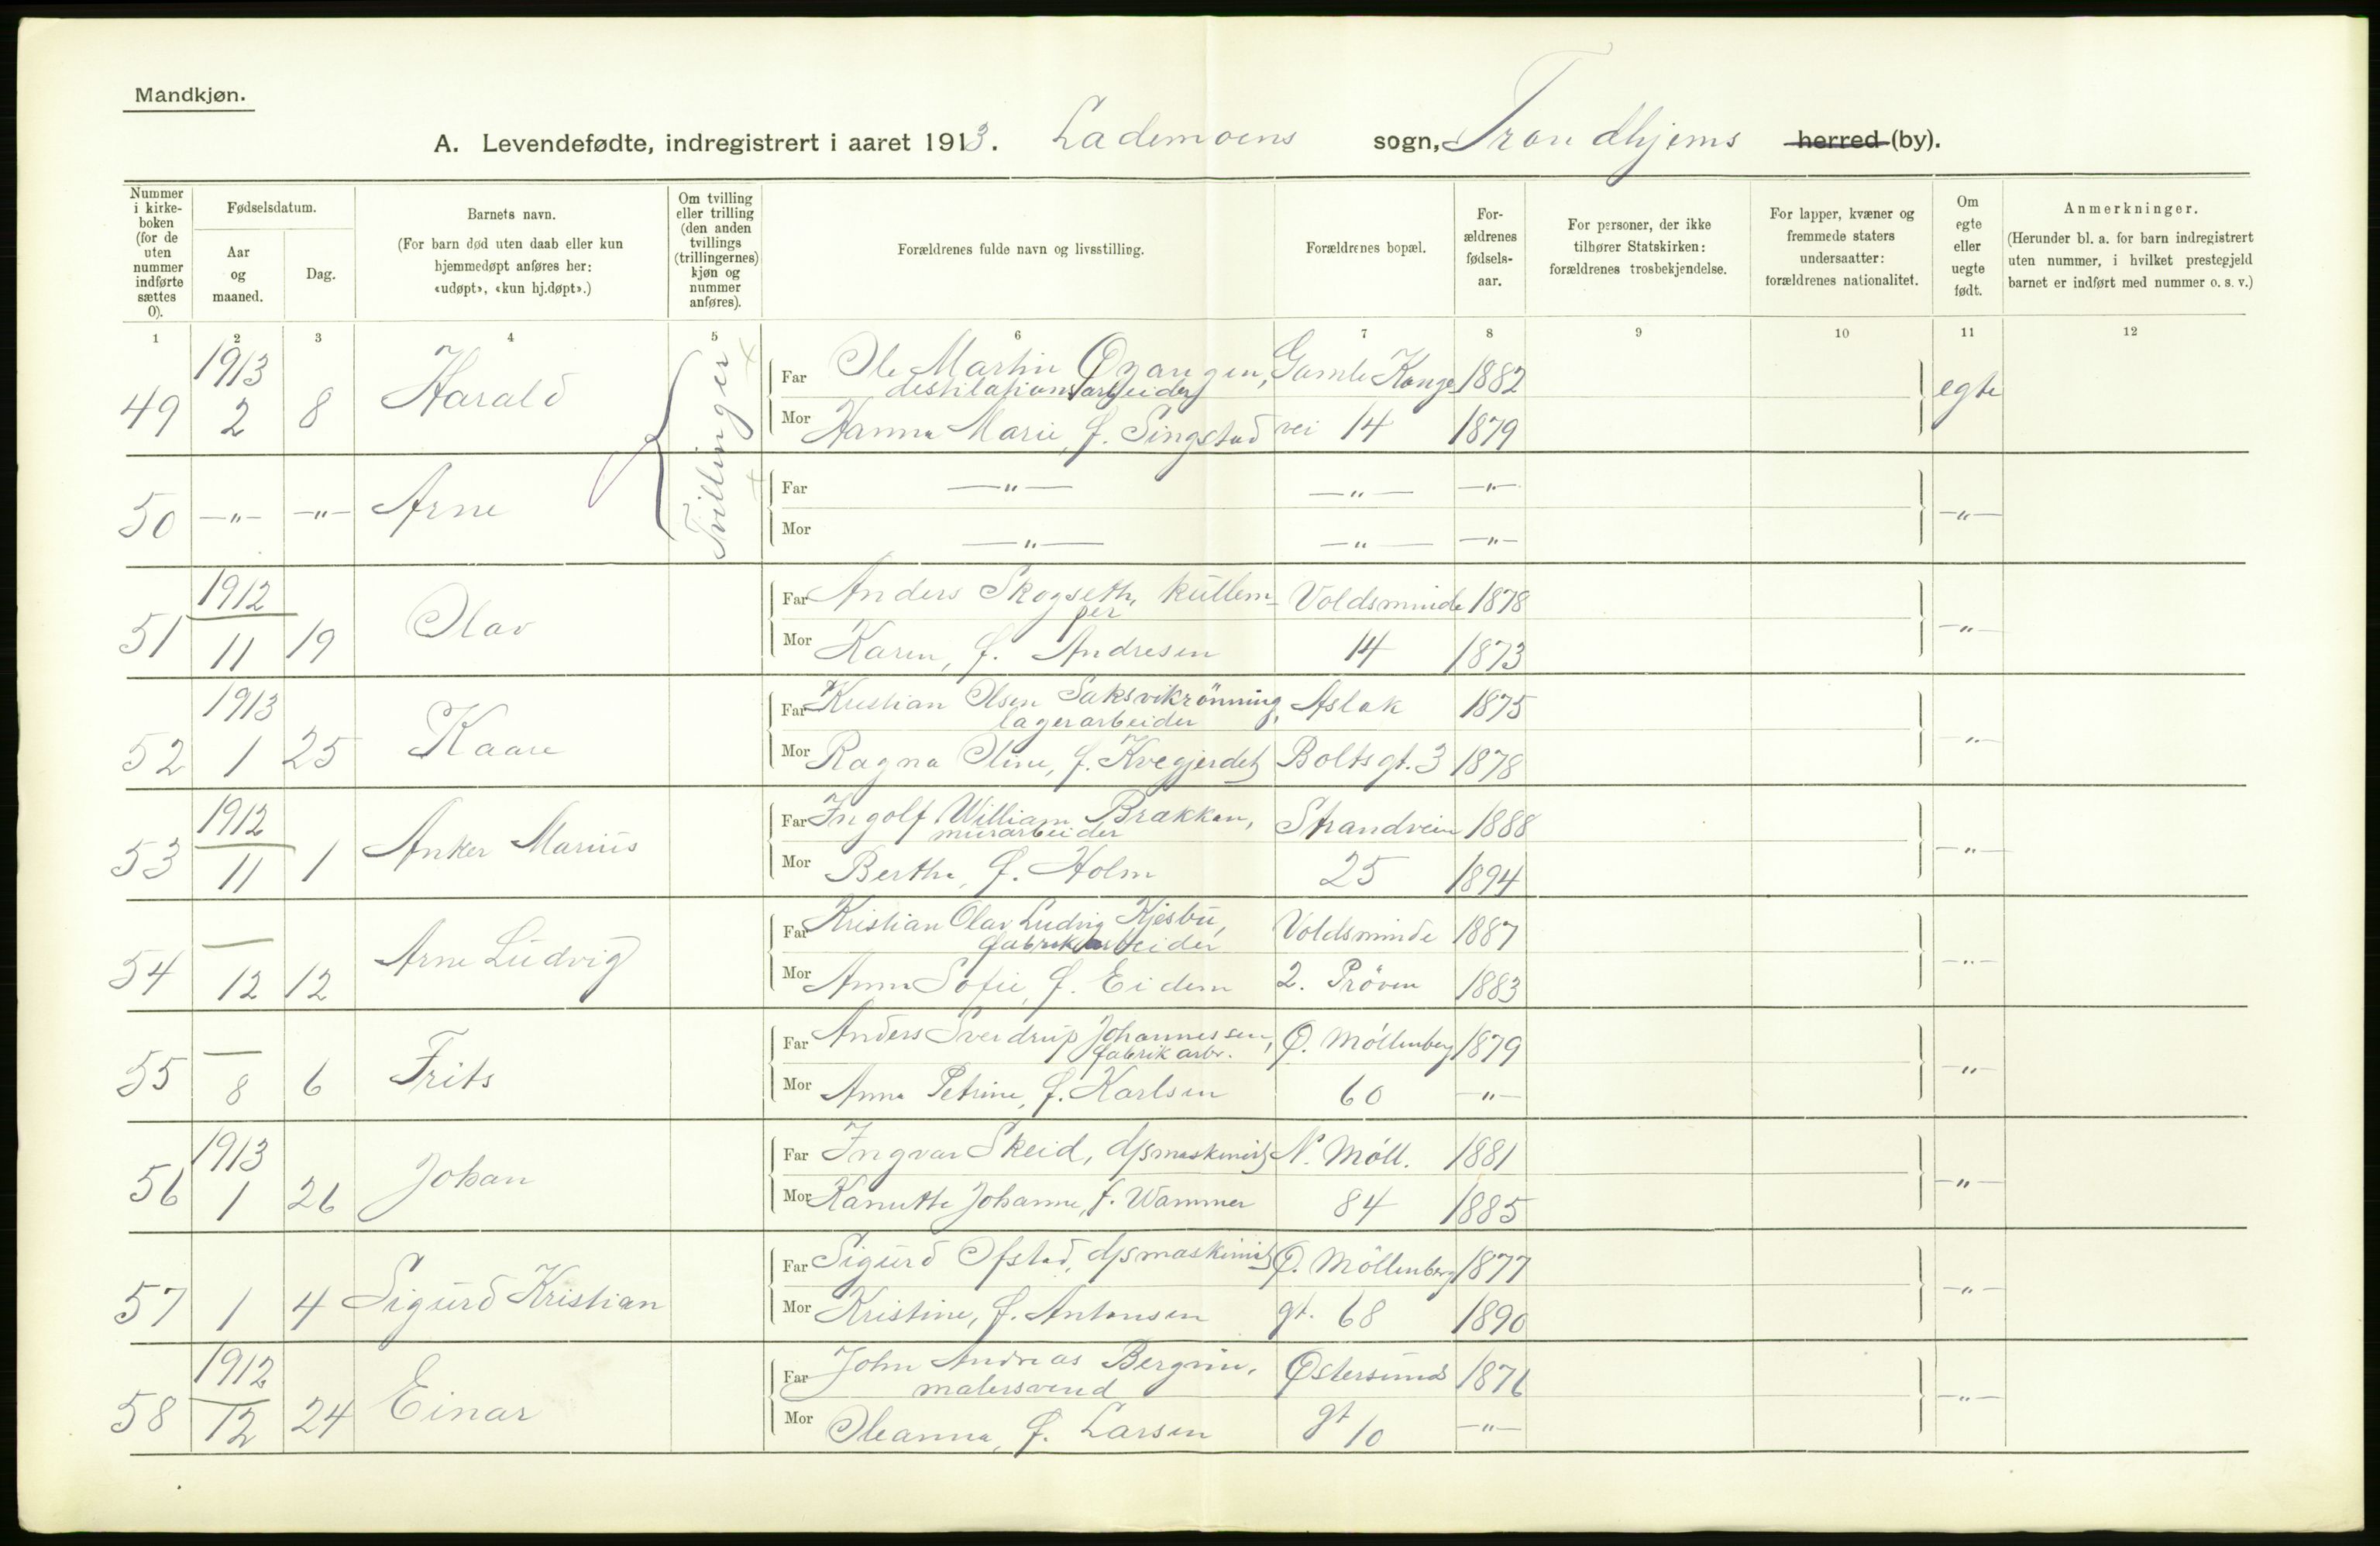 Mandkjøn.
A. Levendefødte, indregistrert i aaret 1913. Lademoens sogn, Trondhjems herred (by).
Nummer i kirke-boken (for de uten nummer indførte sættes 0).
Fødselsdatum.
Aar og maaned.
Dag.
Barnets navn.
(For barn død uten daab eller kun hjemmedøpt anføres her: «udøpt», «kun hj.døpt».)
Om tvilling eller trilling (den anden tvillings (trillingernes) kjøn og nummer anføres).
Forældrenes fulde navn og livsstilling.
Forældrenes bopæl.
For-ældrenes fødsels-aar.
For personer, der ikke tilhører Statskirken: forældrenes trosbekjendelse.
For lapper, kvæner og fremmede staters undersaatter: forældrenes nationalitet.
Om egte eller uegte født.
Anmerkninger.
(Herunder bl. a. for barn indregistrert uten nummer, i hvilket prestegjeld barnet er indført med nummer o. s. v.)
1 2 3 4 5 6 7 8 9 10 11 12
49 1913 2 8 Harald Tvillinger
Far Ole Martin Øvangen, Gamle Konge 1882 egte
destilationsarbeider
Mor Hanna Marie, f. Singstad vei 14 1879
50 —"— —"— Arne
Far —"— —"— —"— —"—
Mor —"— —"— —"—
51 1912 11 19 Olav
Far Anders Skogseth, kullem- Voldsminde 1878 —"—
per
Mor Karen, f. Andresen 14 1873
52 1913 1 25 Kaare
Far Kristian Olsen Saksvikrönning, Aslak 1875 —"—
lagerarbeider
Mor Ragna Oline, f. Kvegjerdet Boltsgt. 3 1878
53 1912 11 1 Anker Marius
Far Ingolf William Brækkan, Strandveien 1888 —"—
murarbeider
Mor Bertha, f. Holm 25 1894
54 — 12 12 Arne Ludvig
Far Kristian Olav Ludvig Kjesbu, Voldsminde 1887 —"—
fabrikarbeider
Mor Anna Sofie, f. Eidem 2. Pröven 1883
55 — 8 6 Frits
Far Anders Sverdrup Johannessen, Ø. Möllenberg 1879 —"—
fabrik arb.
Mor Anna Petrine, f. Karlsen 60 —"—
56 1913 1 26 Johan
Far Ingvar Skeid, d/smaskinist N. Möll. 1881 —"—
Mor Kanutte Johanne, f. Wammer 84 1885
57 1 4 Sigurd Kristian
Far Sigurd Ofstad, d/smaskinist Ø. Möllenberg 1877 —"—
Mor Kristine, f. Antonsen gt. 68 1890
58 1912 12 24 Einar
Far John Andreas Bergvin, Østersunds 1876 —"—
malersvend
Mor Oleanna, f. Larsen gt 10 —"—